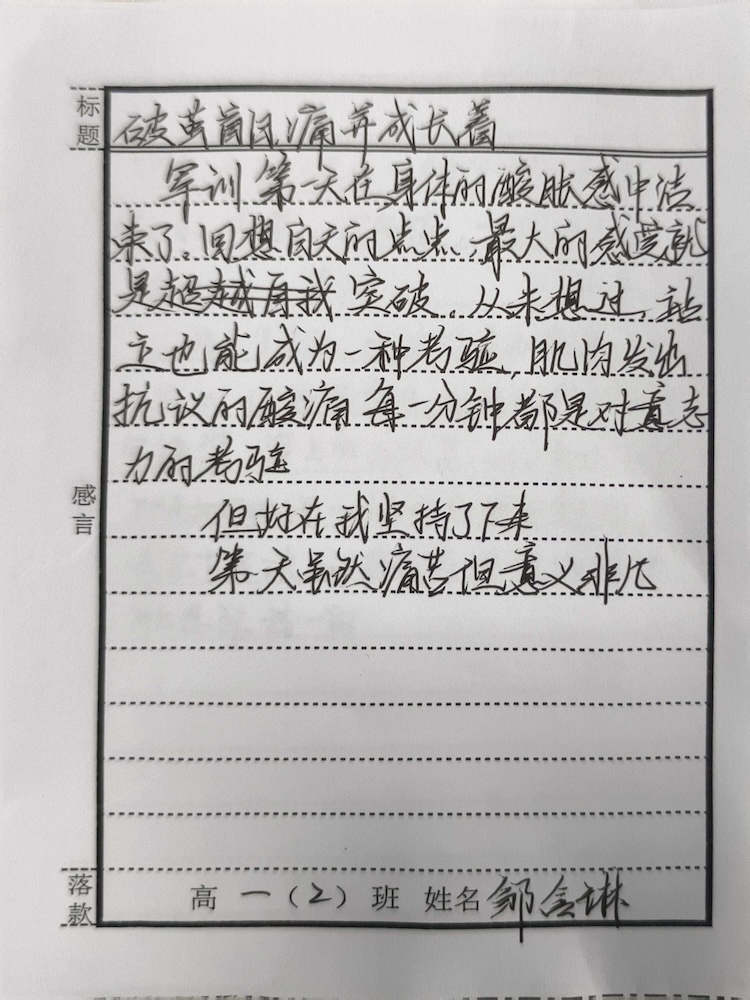 标题
破茧首日,痛并成长着
军训第一天在身体的酸胀感中结
束了。回想白天的点点,最大的感受就
是超越自我突破。从未想过,站
立也能成为一种考验,肌肉发出
抗议的酸痛每一分钟都是对意志
力的考验
感言
但好在我坚持了下来
第一天虽然痛苦但意义非凡
落款
高一(2)班 姓名 邹含琳